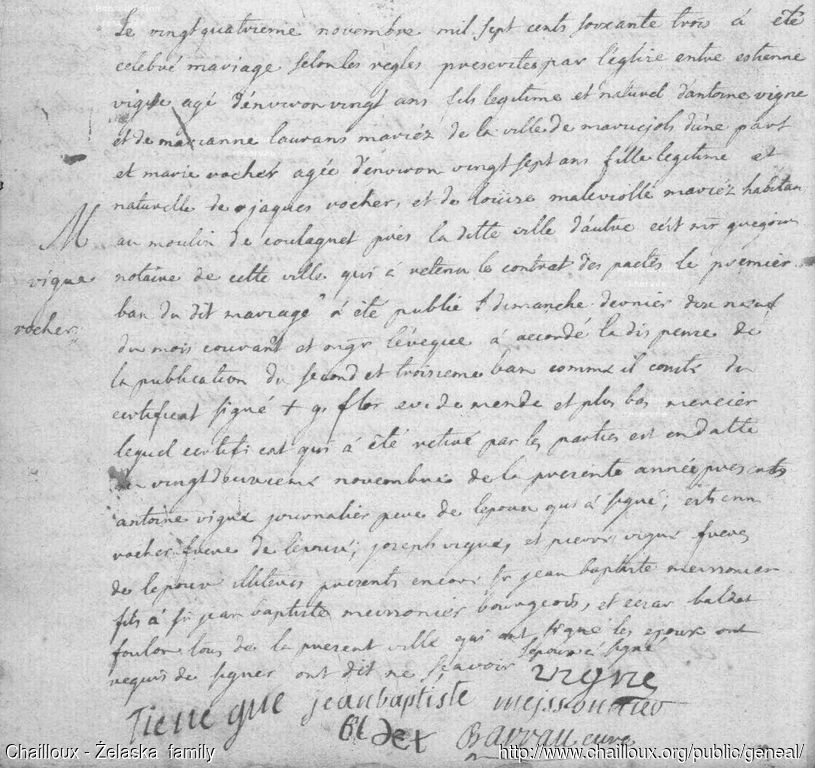 Le vingtquatrieme novembre mil sept cents soixante trois á été
celebré mariage selon les regles prescrites par l'église entre estienne
vigne agé d'énviron vingt ans, fils legitime et naturel d'antoine vigne
et de marianne laurans mariéz de la ville de maruejols d'une part
et marie rocher agée d'énviron vingt sept ans fille legitime et
naturelle de jaques rocher, et de louise maleviolle mariéz habitan
au moulin de coulagnet près la ditte ville d'autre
M
vigne
rocher
notaire de cette ville qui á retenu le contrat des pactes le premier
ban du dit mariage á été publié dimanche dernier dix neuf
du mois courant et mgr l'évêque á accordé la dispense de
la publication du second et troisieme ban comme il conste du
certificat signé + g. flor. ev. de mende et plus bas mercier
lequel certificat qui á été retiré par les parties est en datte
vingtdeuxieme novembre de la presente année presents
antoine vigne journalier pere de lepoux qui á signé, estienn
rocher frere de l'epouse, joseph vigne, et pierre vigne freres
de lepoux illiterés presents encore sr jean baptiste meissonier
fils á sr jean baptiste meissonier bourgeois, et baldet
foulon tous de la present ville qui ont signé les epoux ont
l'epoux a signé
requis de signer ont dit ne scavoir
vigne
Tiene gue jeanbaptiste meissonnier
Bldet Barrau curé
Chailloux - Żelaska family
http://www.chailloux.org/public/geneal/